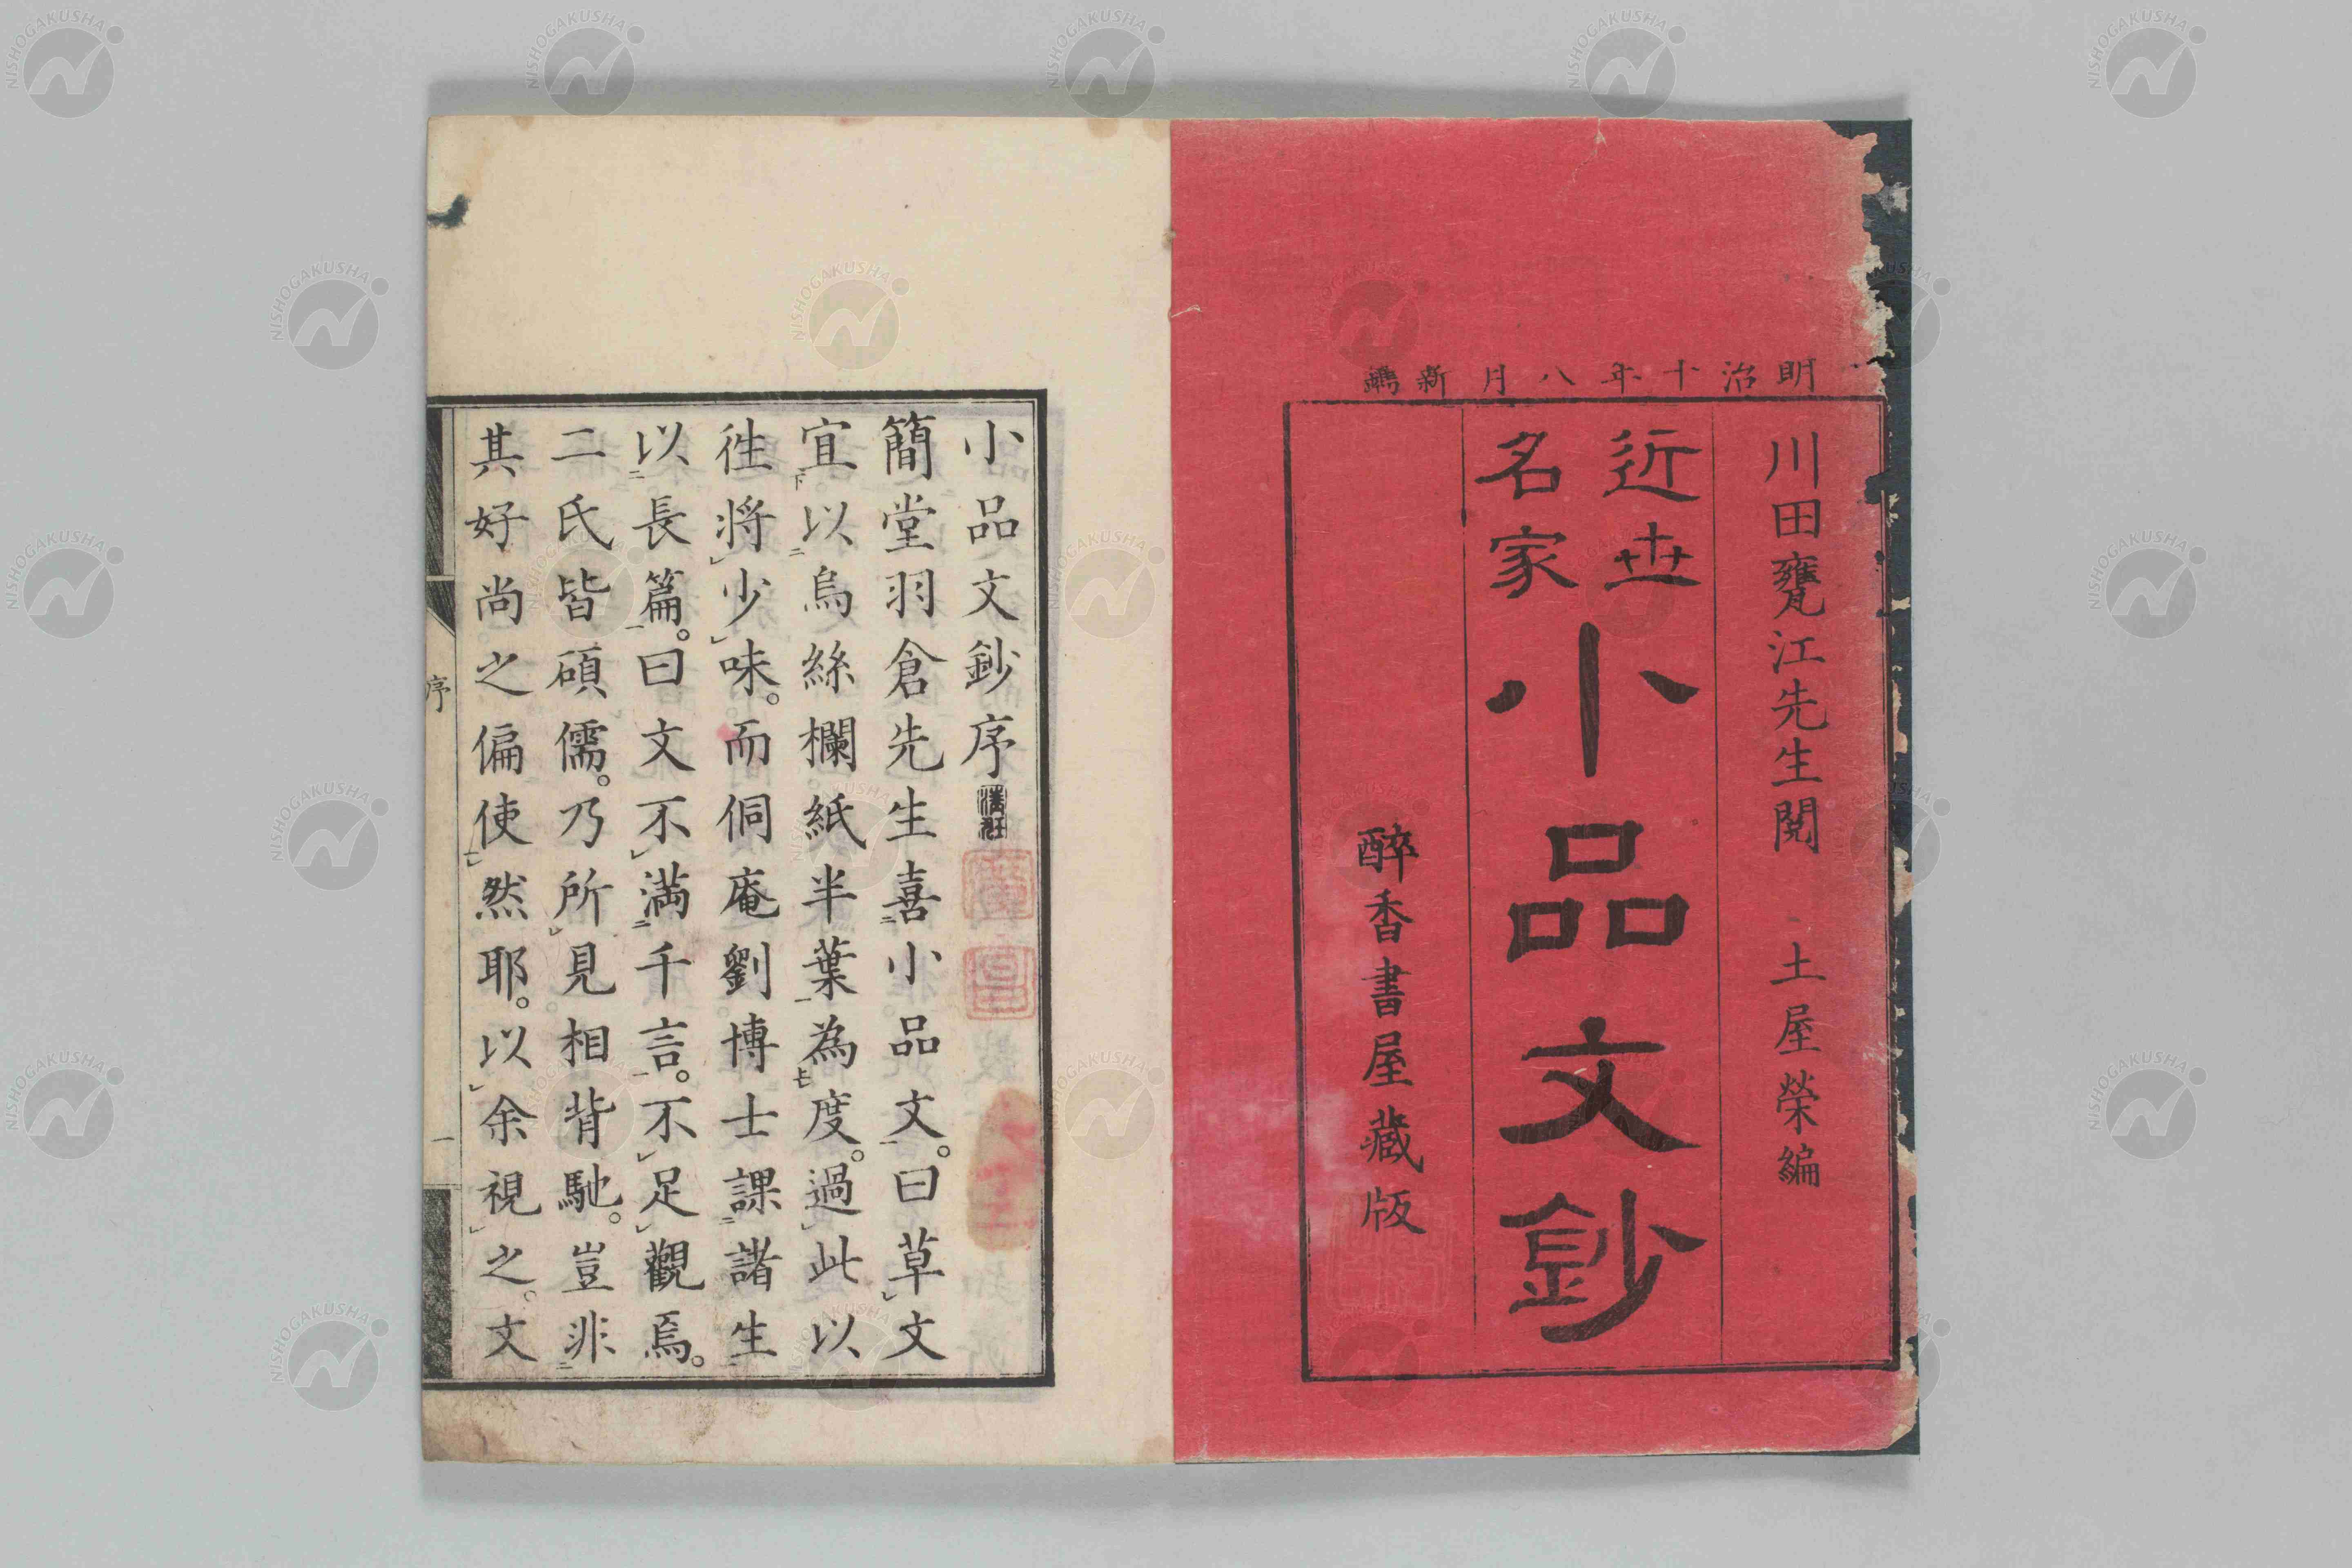 明治十年八月新鐫
川田甕江先生閱　土屋榮編
近世
名家
小品文鈔
醉香書屋藏版
小品文鈔序
簡堂羽倉先生喜小品文。曰草文
宜以烏絲欄紙半葉為度。過此以
徃將少味。而侗庵劉博士課諸生
以長篇。曰文不滿千言。不足觀焉。
二氏皆碩儒。乃所見相背馳。豈非
其好尚之偏使然耶。以余視之。文
序
一
NISHOGAKUSHA